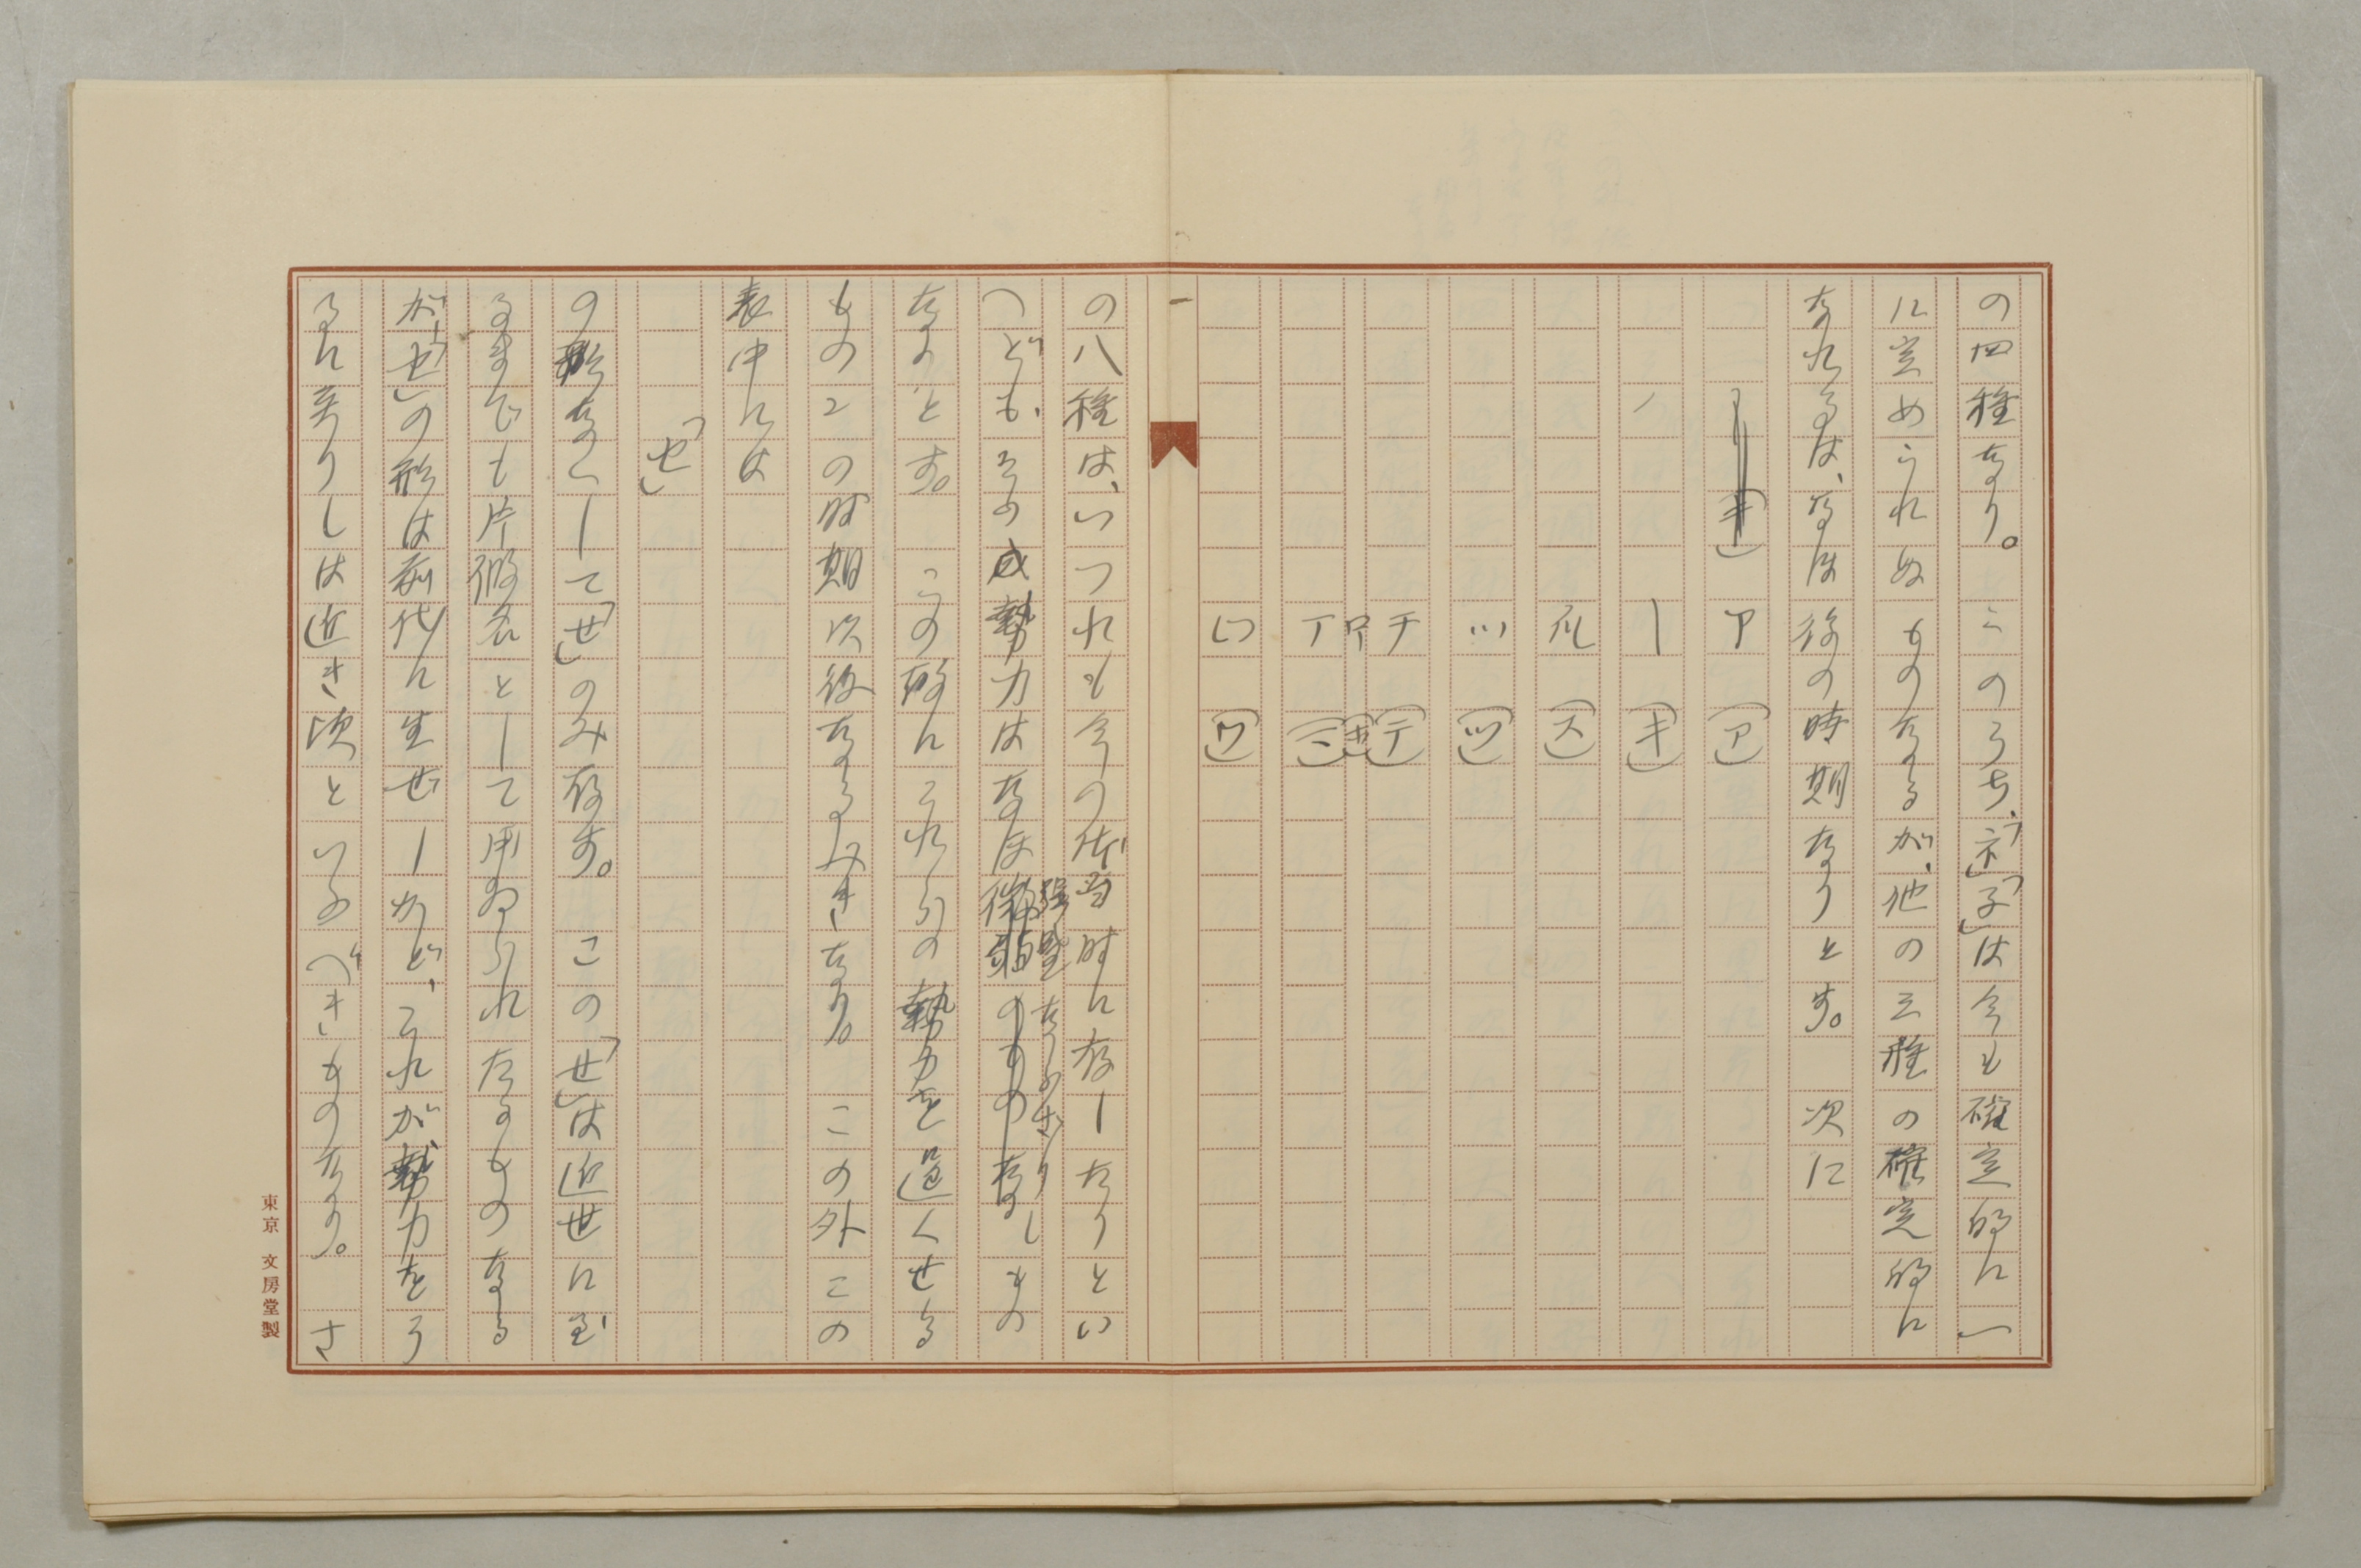 の四種なり。このうち、「ネ」「子」は今も確定的に一
に定められぬものなるが、他の三種の確定的に
なれるは、なほ後の時期なりとす。次に
ア（ア）
｜（キ）
爪（ス）
ツ（ツ）
チ（テ）
ㄗ（サ）
丅（ニ）
の八種は、いづれも今の代当時に存したりとい
へども、その勢力はなほ強盛ならざりしもの
なりとす。この故にこれらの勢力を逞くせる
ものはこの時期以後なるべきなり。この外この
表中には
「せ」
の形なくして「せ」のみ存す。この「せ」は近世に至
るまでも片仮名として用ゐられたるものなる
が、「せ」の形は前代に生ぜしかど、これが勢力をう
るに至りしは近き頃といふべきものなり。さ
東京 文房堂製